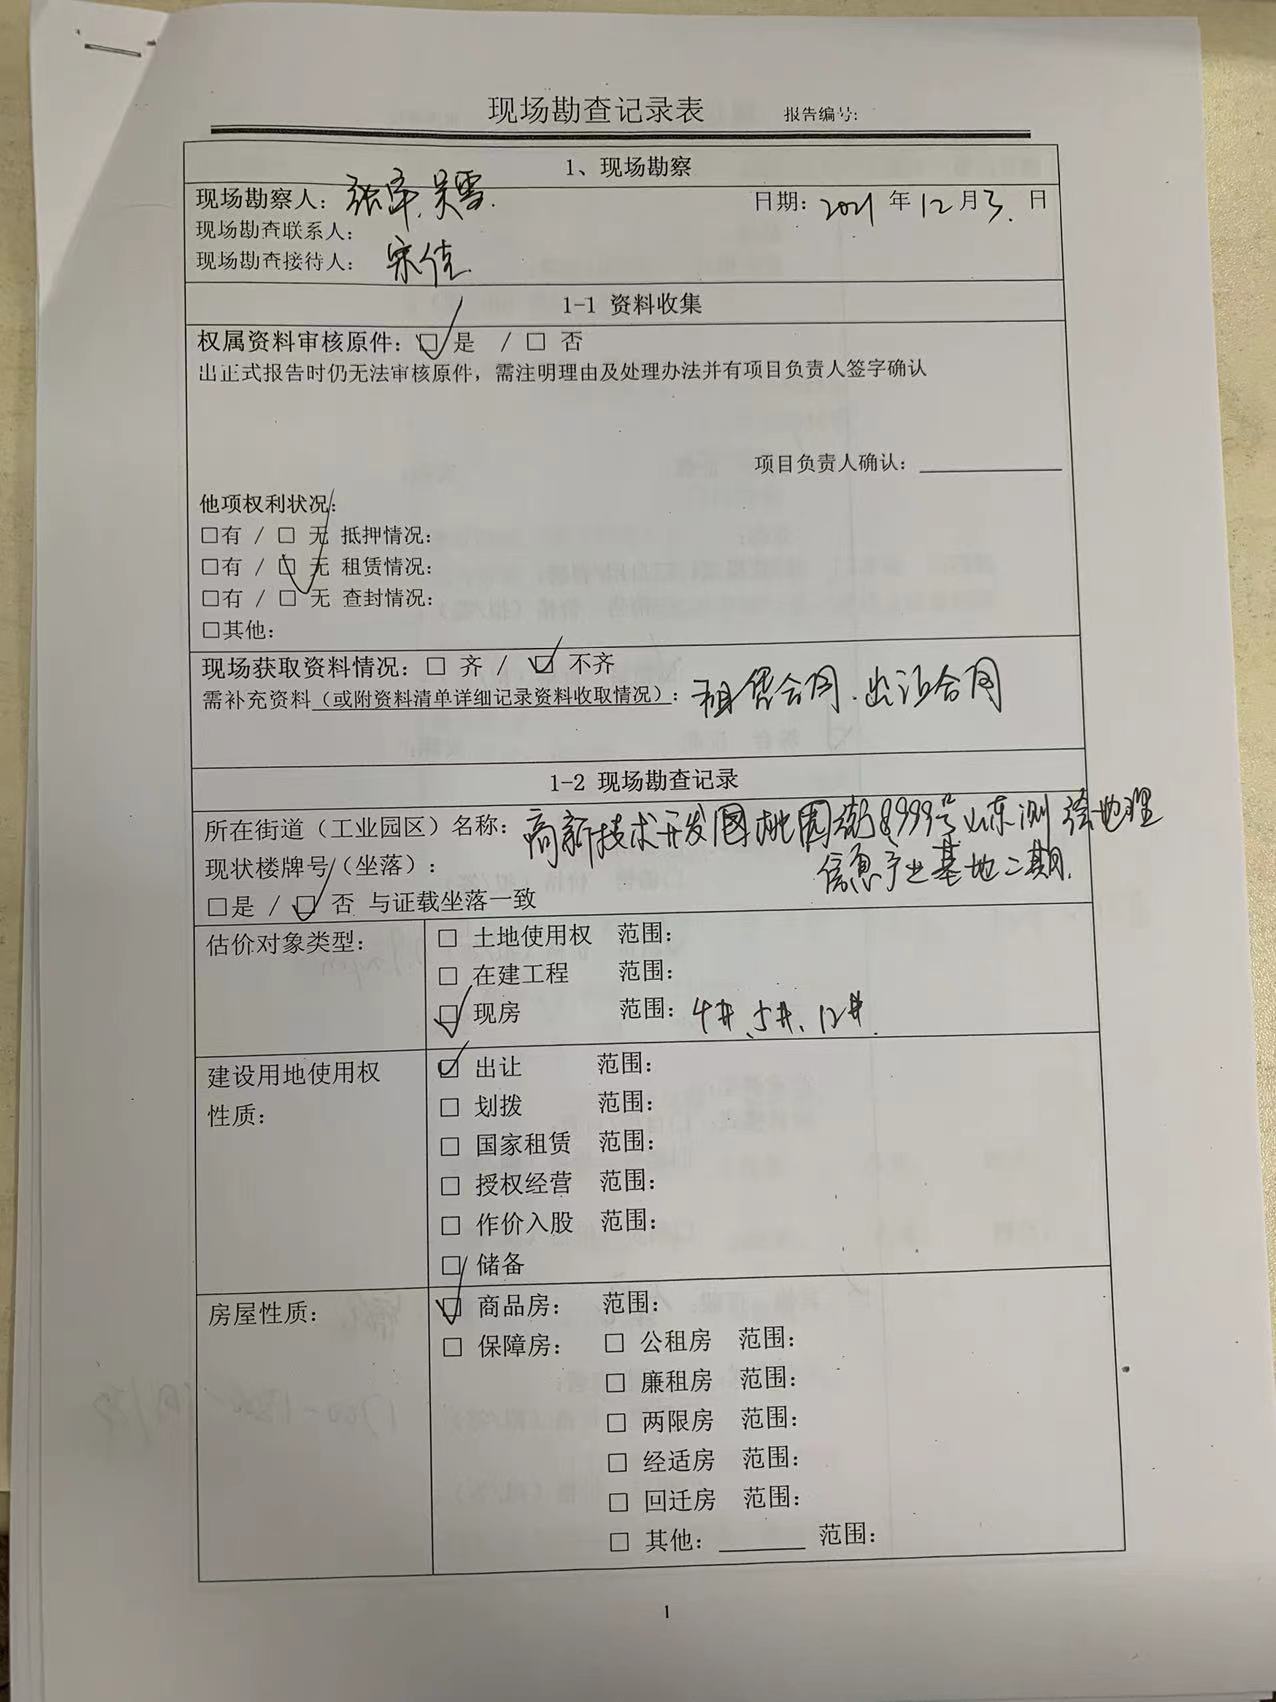 现场勘查记录表 报告编号:
1、现场勘察
现场勘察人: 张军、吴雪. 日期: 2021 年 12 月 3 日
现场勘查联系人:
现场勘查接待人: 宋佳
1-1 资料收集
权属资料审核原件: ☑ 是 / □ 否
出正式报告时仍无法审核原件，需注明理由及处理办法并有项目负责人签字确认
项目负责人确认:
他项权利状况:
□有 / ☑ 无 抵押情况:
□有 / ☑ 无 租赁情况:
□有 / ☑ 无 查封情况:
□其他:
现场获取资料情况: □ 齐 / ☑ 不齐
需补充资料(或附资料清单详细记录资料收取情况): 租赁合同、出让合同
1-2 现场勘查记录
所在街道（工业园区）名称: 高新技术开发园桃园街8999号山东测绘地理
现状楼牌号（坐落）: 信息产业基地二期.
□是 / ☑ 否 与证载坐落一致
估价对象类型: □ 土地使用权 范围:
□ 在建工程 范围:
☑ 现房 范围: 4#、5#、12#.
建设用地使用权 ☑ 出让 范围:
性质: □ 划拨 范围:
□ 国家租赁 范围:
□ 授权经营 范围:
□ 作价入股 范围:
□ 储备
房屋性质: ☑ 商品房: 范围:
□ 保障房: □ 公租房 范围:
□ 廉租房 范围:
□ 两限房 范围:
□ 经适房 范围:
□ 回迁房 范围:
□ 其他: 范围:
1